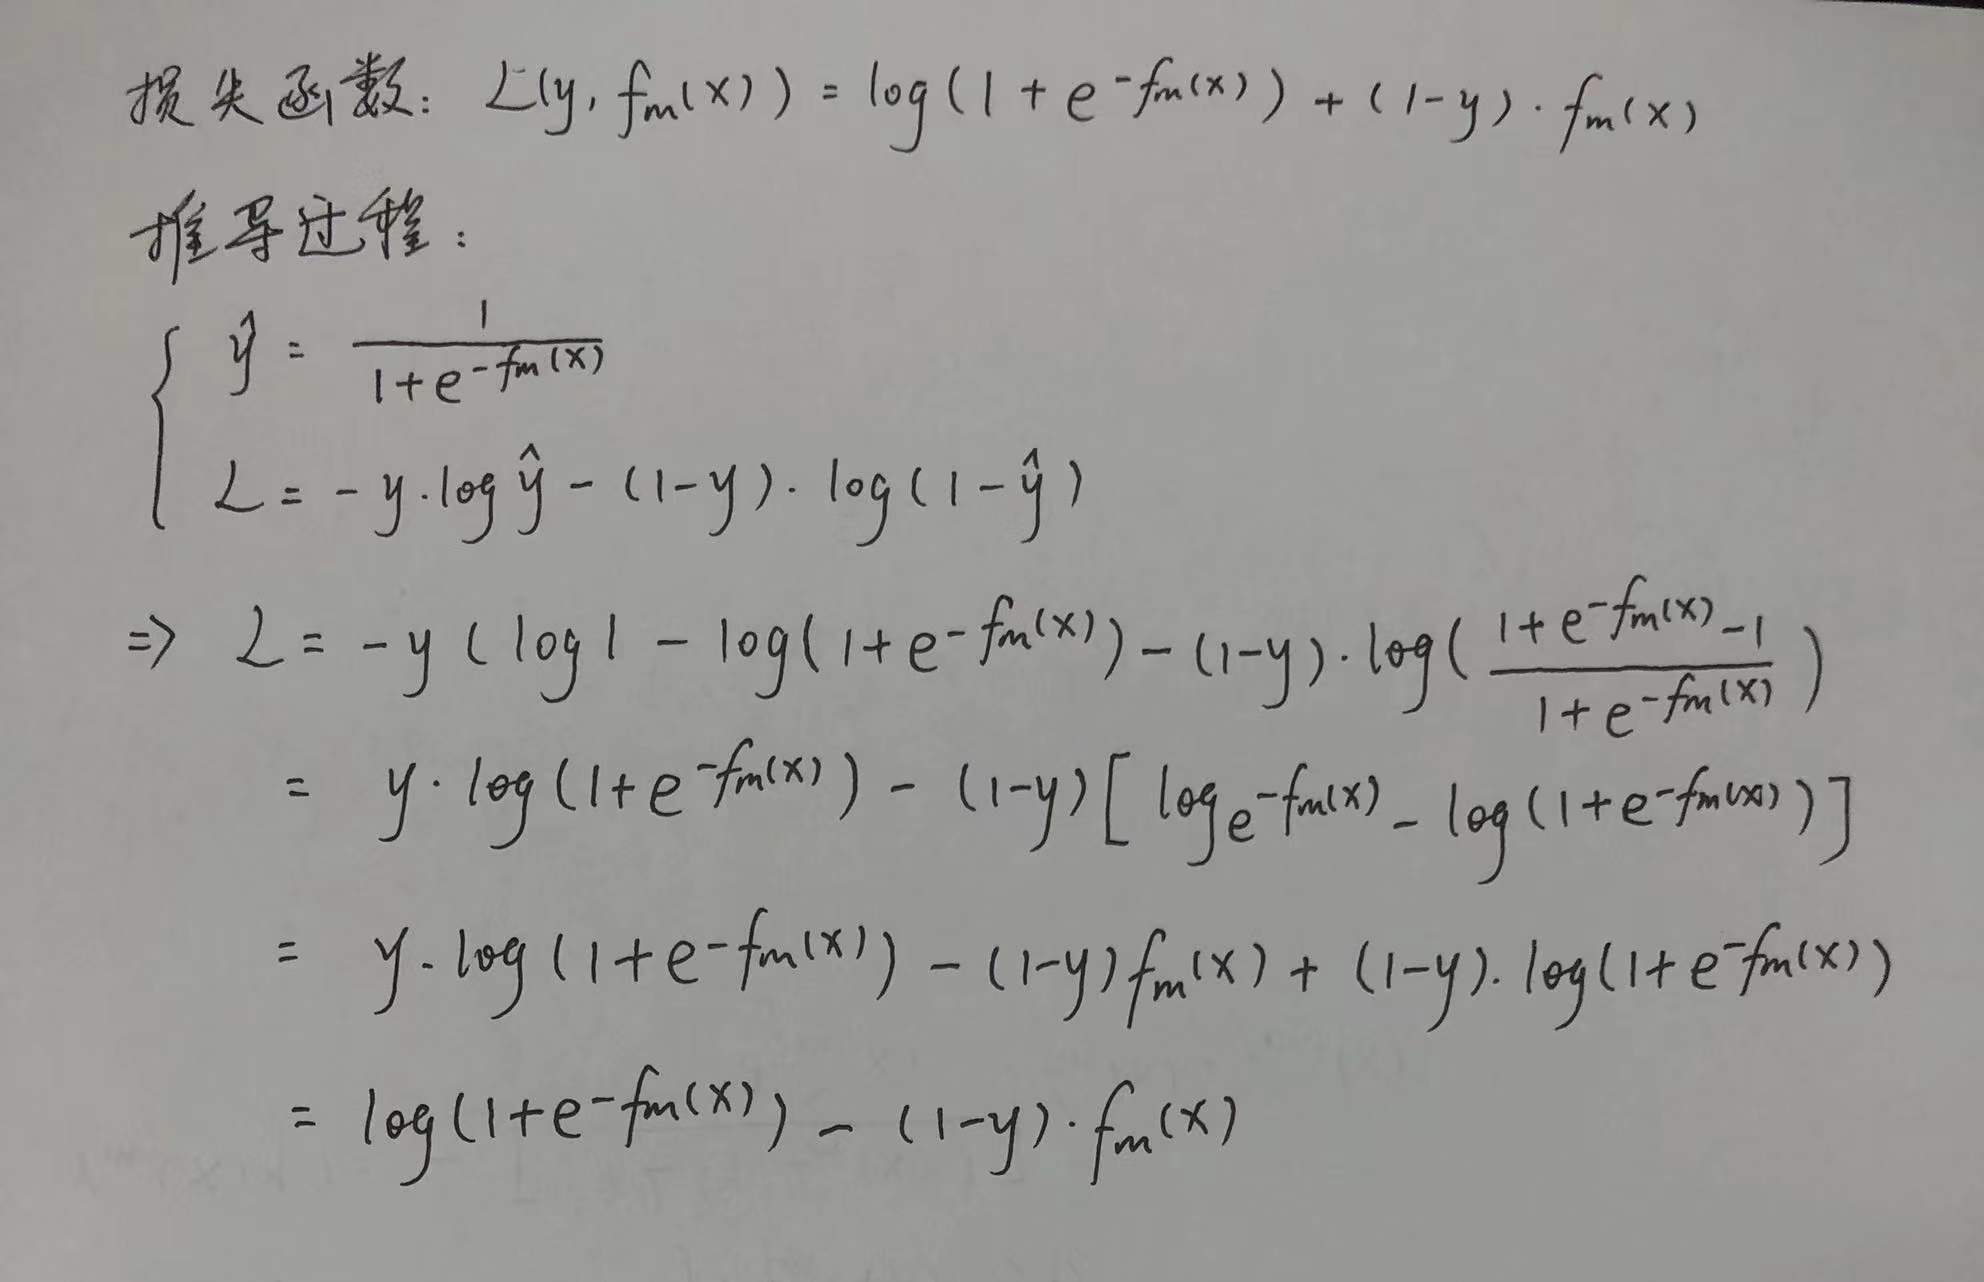 损失函数: L(y, fm(x)) = log(1 + e^-fm(x)) + (1-y)·fm(x)
推导过程:
ŷ = 1 / (1+e^-fm(x))
L = -y·logŷ - (1-y)·log(1-ŷ)
=> L = -y(log1 - log(1+e^-fm(x)) - (1-y)·log((1+e^-fm(x)-1) / (1+e^-fm(x)))
= y·log(1+e^-fm(x)) - (1-y)[loge^-fm(x) - log(1+e^-fm(x))]
= y·log(1+e^-fm(x)) - (1-y)fm(x) + (1-y)·log(1+e^-fm(x))
= log(1+e^-fm(x)) - (1-y)·fm(x)